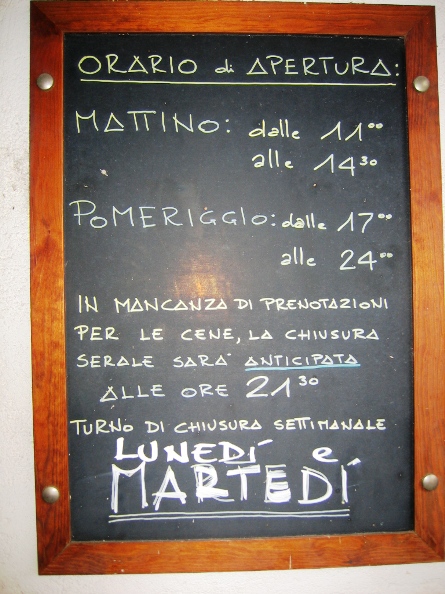 ORARIO di APERTURA:
MATTINO: dalle 11⁰⁰
alle 14³⁰
POMERIGGIO: dalle 17⁰⁰
alle 24⁰⁰
IN MANCANZA DI PRENOTAZIONI
PER LE CENE, LA CHIUSURA
SERALE SARA' ANTICIPATA
ALLE ORE 21³⁰
TURNO DI CHIUSURA SETTIMANALE
LUNEDÍ e
MARTEDÍ